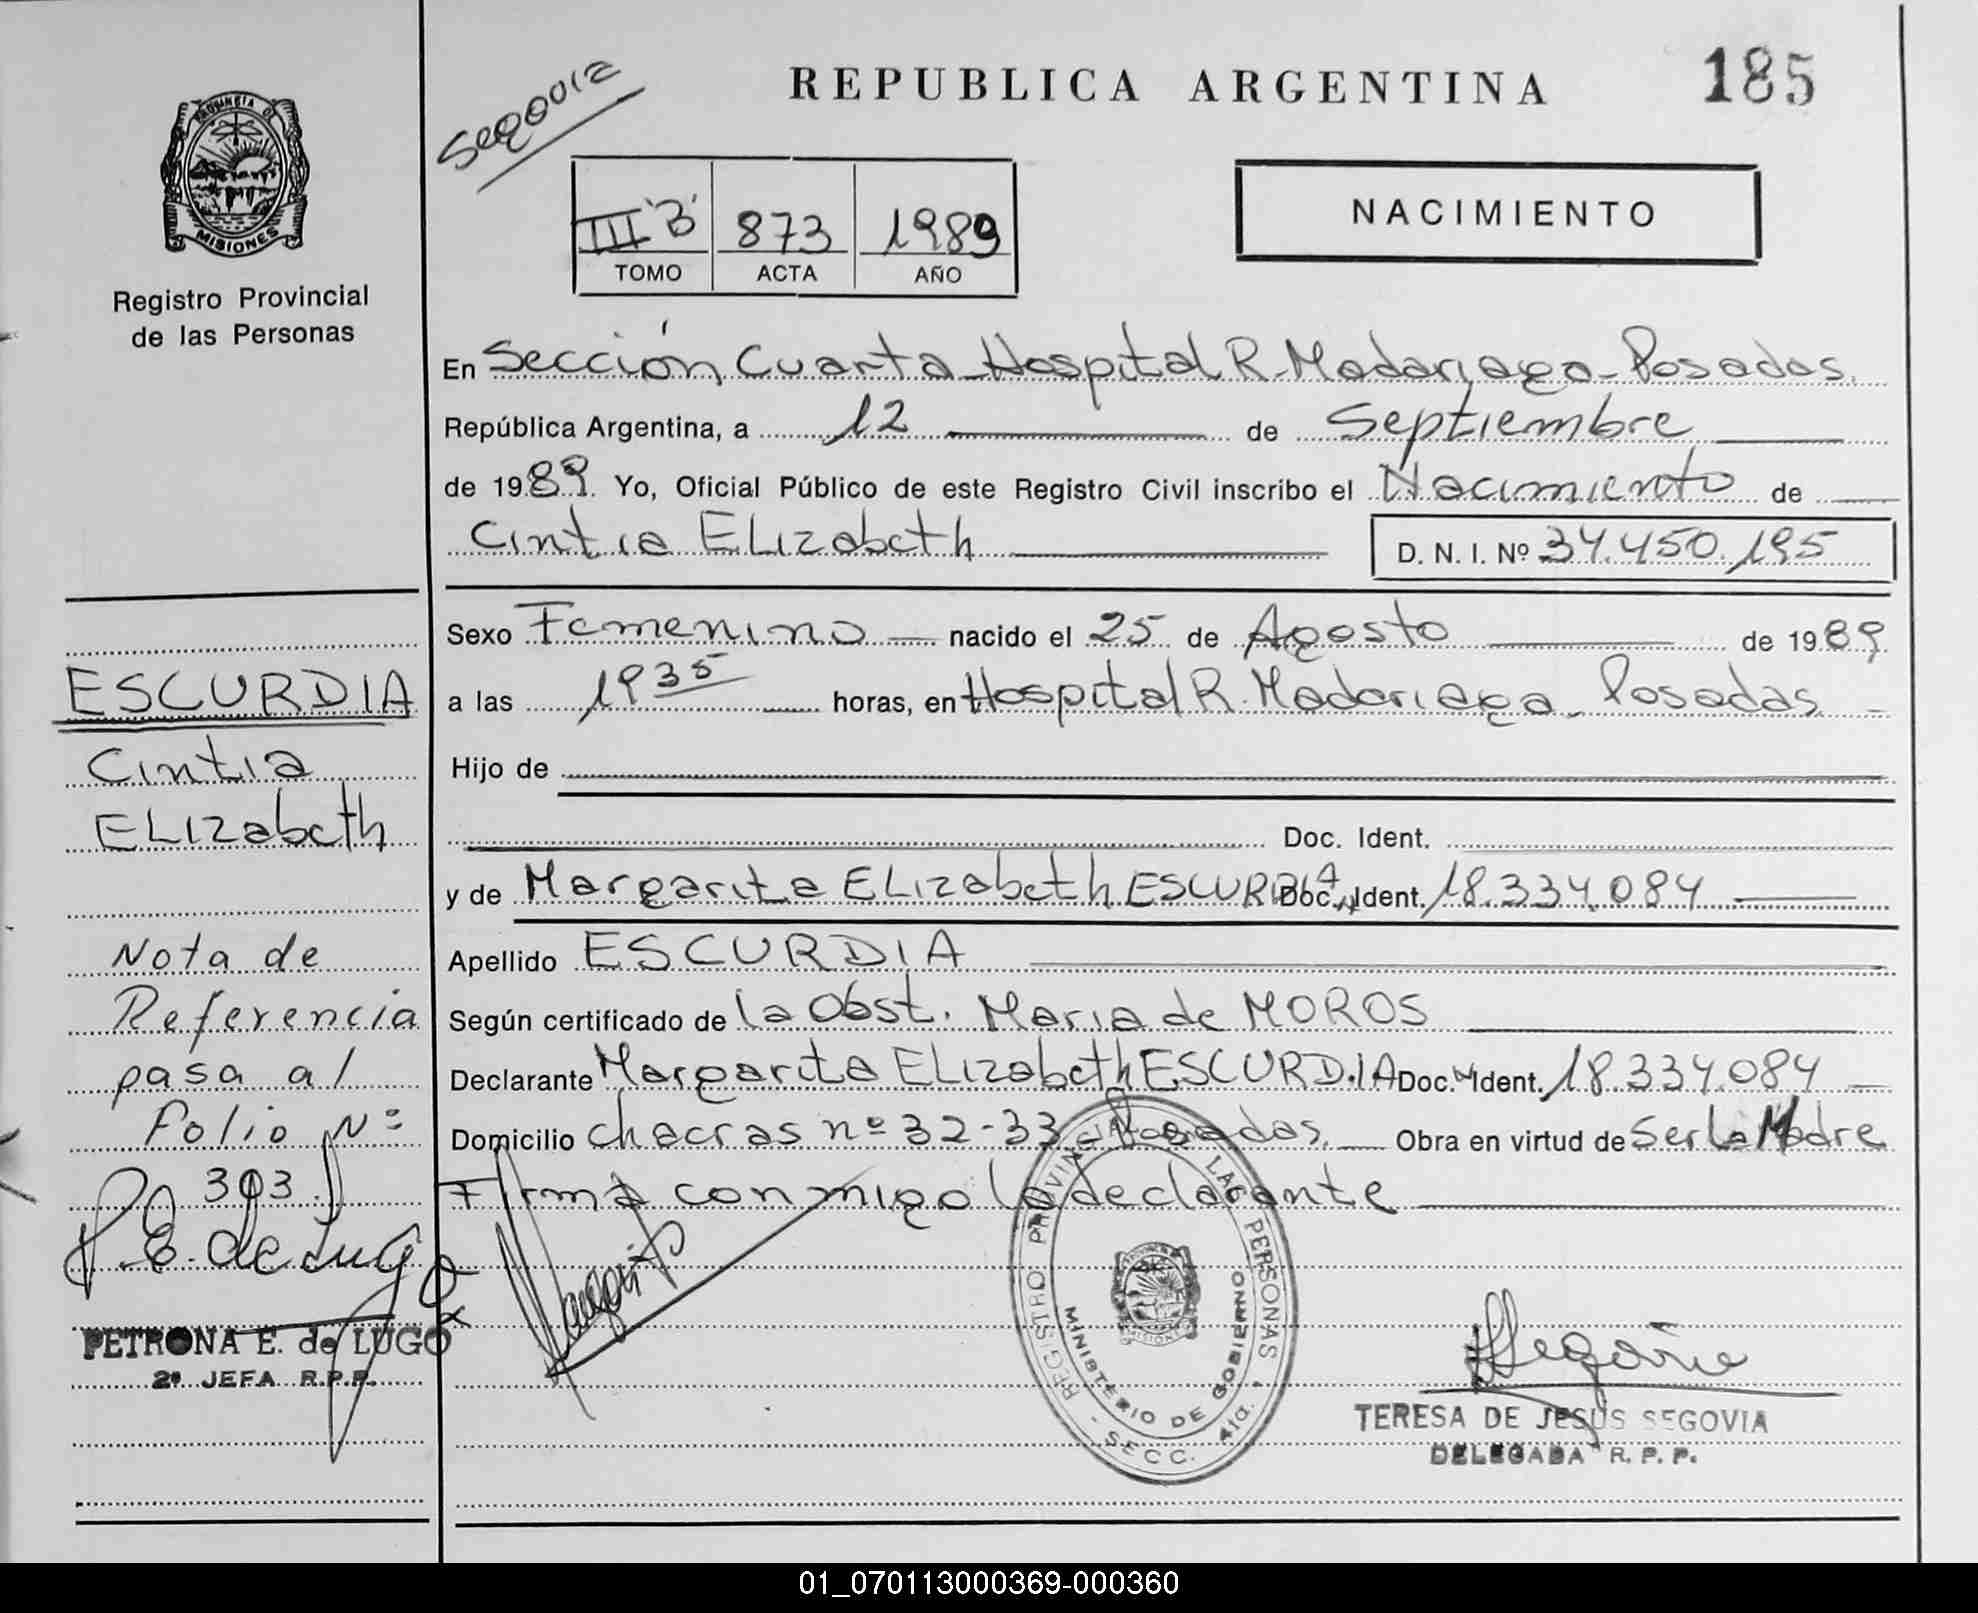 REPUBLICA ARGENTINA
185
Segovia
PROVINCIA D
MISIONES
Registro Provincial
de las Personas
III "B" 873 1989
TOMO ACTA AÑO
NACIMIENTO
En Sección Cuarta - Hospital R. Madariaga - Posadas
República Argentina, a 12 de Septiembre
de 1989. Yo, Oficial Público de este Registro Civil inscribo el Nacimiento de
Cintia ELizabeth
D. N. I. Nº 34.450.195
Sexo Femenino nacido el 25 de Agosto de 1989
a las 1935 horas, en Hospital R. Madariaga - Posadas
Hijo de
Doc. Ident.
y de Margarita ELizabeth ESCURDIA Doc. Ident. 18.334.084
Apellido ESCURDIA
Según certificado de la Obst. Maria de MOROS
Declarante Margarita ELizabeth ESCURDIA Doc. Ident. 18.334.084
Domicilio chacras nº 32-33 - Posadas. Obra en virtud de Ser La Madre
Firma conmigo la declarante
ESCURDIA
Cintia
ELizabeth
Nota de
Referencia
pasa al
Folio Nº
303
P. E. de Lugo
PETRONA E. de LUGO
2ª JEFA R.P.P.
Margarita
REGISTRO PROVINCIAL LAS PERSONAS
MINISTERIO DE GOBIERNO
- SECC. 4ta. -
Segovia
TERESA DE JESUS SEGOVIA
DELEGADA R. P. P.
01_070113000369-000360